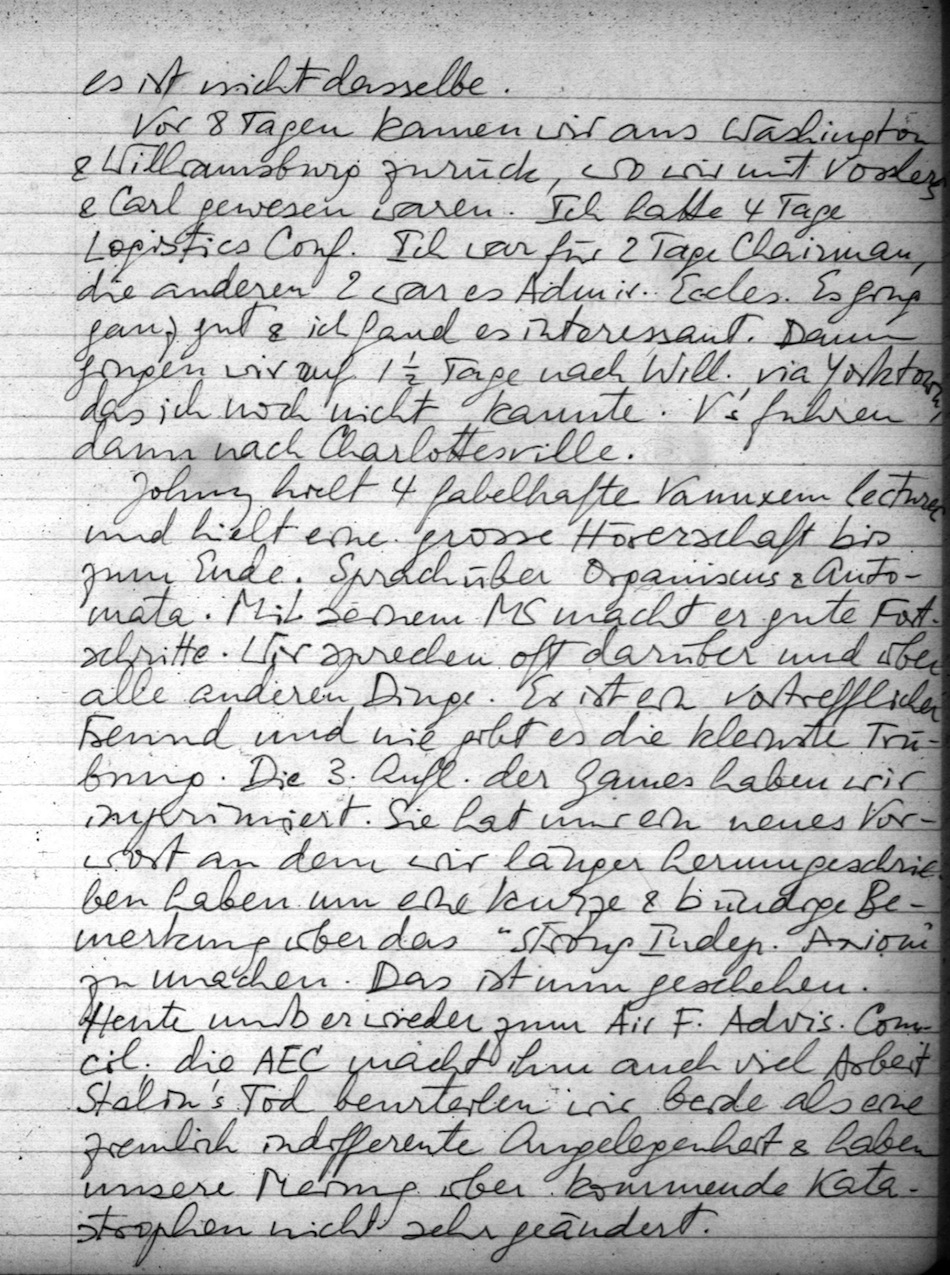 es ist nicht dasselbe.
Vor 8 Tagen kamen wir aus Washington
& Williamsburg zurück, wo wir mit Vosslers
& Carl gewesen waren. Ich hatte 4 Tage
Logistics Conf. Ich war für 2 Tage Chairman,
die anderen 2 war es Admir. Eccles. Es ging
ganz gut & ich fand es interessant. Dann
gingen wir auf 1½ Tage nach Will. via Yorktown,
das ich noch nicht kannte. V's fuhren
dann nach Charlottesville.
Johnny hielt 4 fabelhafte Vanuxem lectures
und hielt eine grosse Hörerschaft bis
zum Ende. Sprach über Organisms & Auto-
mata. Mit seinem MS macht er gute Fort-
schritte. Wir sprechen oft darüber und über
alle anderen Dinge. Er ist ein vortrefflicher
Freund und nie gibt es die kleinste Trü-
bung. Die 3. Aufl. der Games haben wir
imprimiert. Sie hat nur ein neues Vor-
wort an dem wir länger herumgeschrie-
ben haben um eine kurze & bündige Be-
merkung über das "Strong Indep. Axiom"
zu machen. Das ist nun geschehen.
Heute muss er wieder zum Air F. Advis. Coun-
cil. die AEC macht ihm auch viel Arbeit
Stalin's Tod beurteilen wir beide als eine
ziemlich indifferente Angelegenheit & haben
unsere Meinung über kommende Kata-
strophen nicht sehr geändert.